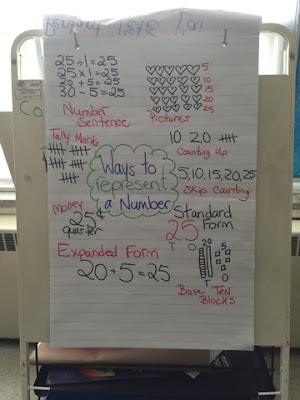 25 ÷ 1 = 25
25 x 1 = 25
20 + 5 = 25
30 - 5 = 25
Number
Sentence
5
10
15
20
25
Pictures
Tally Marks
10 20
Counting Up
Ways to
represent
a Number
5, 10, 15, 20, 25
Skip Counting
Money
25¢
quarter
Standard
Form
25
T O
Expanded Form
20 + 5 = 25
20 5
T O
Base Ten
Blocks